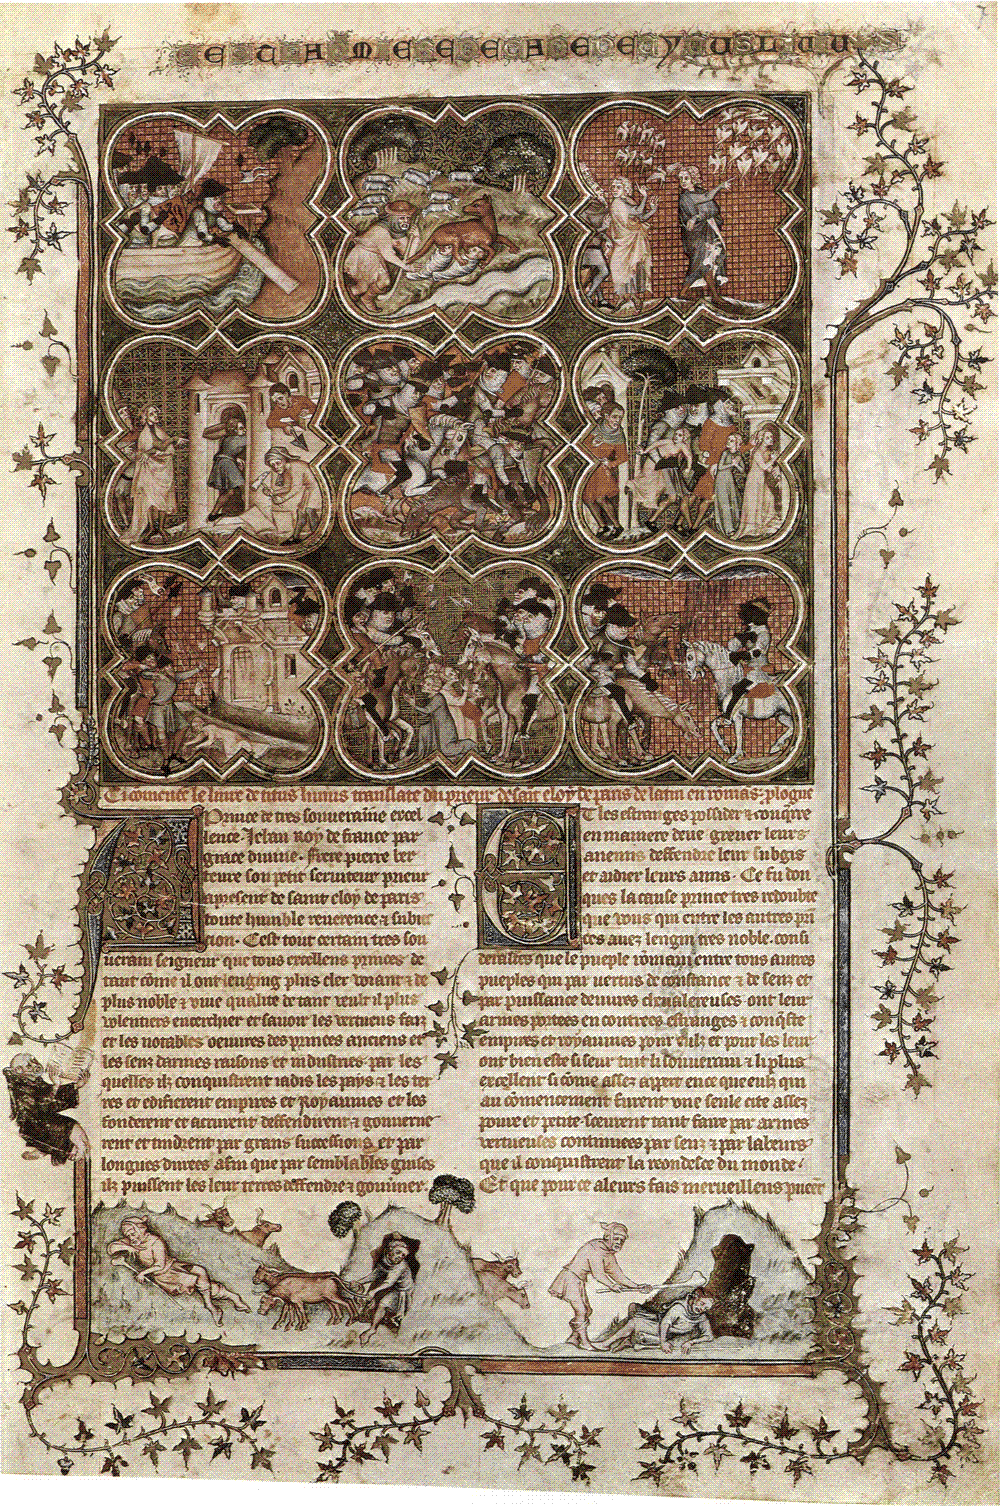 Ci comence le liure de titus liuius translate du prieur de saint eloy de paris de latin en romās. plogue
A Prince de tres souueraine excel
lence. Jehan Roy de france par
grace diuine. frere pierre ber
ceure son petit seruiteur prieur
apresent de saint eloy de paris
toute humble reuerence & subiec
tion. Cest tout certain tres sou
uerain seigneur que tous excellens princes de
tant cōme il ont lenging plus cler voiant & de
plus noble & viue qualite de tant veult il plus
volentiers encerchier et sauoir les vertueus faiz
et les notables oeuures des princes anciens et
les senz darmes raisons et industries par les
quelles ilz conquistrent iadis les pays & les ter
res et edifierent empires et Royaumes et les
fonderent et acrurent deffendirent & gouuerne
rent et tindrent par grans successions et par
longues durees afin que par semblables guises
ilz puissent les leur terres deffendre & gouuner.
Et les estranges possider & conqrre
en maniere deue greuer leurs
anemis deffendre leur subgis
et aidier leurs amis. Ce fu don
ques la cause prince tres redoubte
que vous qui entre les autres prī
ces auez lengin tres noble. consi
derastes que le pueple romain entre tous autres
pueples qui par vertus de constance & de senz et
par puissance deuures cheualereuses ont leur
armes portees en contrees estranges & conqste
empires et royaumes pour eulz et pour les leur
ont bien este li seur tout li souuerain & li plus
excellent si cōme assez appert en ce que eulz qui
au cōmencement furent vne seule cite assez
poure et petite sceurent tant faire par armes
vertueuses continuees par senz & par labeurs
que il conquistrent la reondesce du monde.
Et que pour ce aleurs fais merueilleus puet